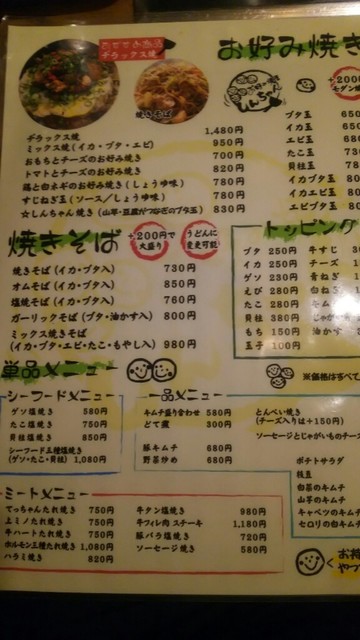 おすすめ商品
デラックス焼
焼きそば
お好み焼き
+200
モダン焼
デラックス焼 1,480円
ミックス焼(イカ・ブタ・エビ) 950円
おもちとチーズのお好み焼き 700円
トマトとチーズのお好み焼き 780円
鶏と白ネギのお好み焼き(しょうゆ味) 780円
すじねぎ玉(ソース／しょうゆ味) 780円
☆しんちゃん焼き(山芋・豆腐がつなぎのブタ玉) 830円
ブタ玉 650
イカ玉 650
エビ玉 680
たこ玉 730
貝柱玉 780
イカブタ玉
イカエビ玉 80
エビブタ玉 80
焼きそば
+200円で
大盛り
うどんに
変更可能
焼きそば(イカ・ブタ入) 730円
オムそば(イカ・ブタ入) 850円
塩焼そば(イカ・ブタ入) 760円
ガーリックそば(ブタ・油かす入) 800円
ミックス焼きそば
(イカ・ブタ・エビ・たこ・もやし入) 980円
トッピング
ブタ 250円
イカ 250円
ゲソ 230円
えび 280円
たこ 280円
貝柱 380円
もち 150円
玉子 100円
牛すじ 30
チーズ
青ねぎ
白ねぎ
キム
じゃがい
油かす 3
※価格はすべて
単品メニュー
シーフードメニュー
ゲソ塩焼き 580円
たこ塩焼き 750円
貝柱塩焼き 850円
シーフード三種塩焼き
(ゲソ・たこ・貝柱) 1,080円
一品メニュー
キムチ盛り合わせ 580円
どて煮 300円
豚キムチ 680円
野菜炒め 680円
とんぺい焼き
(チーズ入りは+150円)
ソーセージとじゃがいものチーズ
ポテトサラダ
枝豆
白菜のキムチ
山芋のキムチ
キャベツのキムチ
セロリの白キムチ
ミートメニュー
てっちゃんたれ焼き 750円
上ミノたれ焼き 750円
牛ハートたれ焼き 750円
ホルモン三種たれ焼き 1,080円
ハラミ焼き 780円
牛タン塩焼き 980円
牛フィレ肉ステーキ 1,180円
豚バラ塩焼き 720円
ソーセージ焼き 580円
お持
やっ